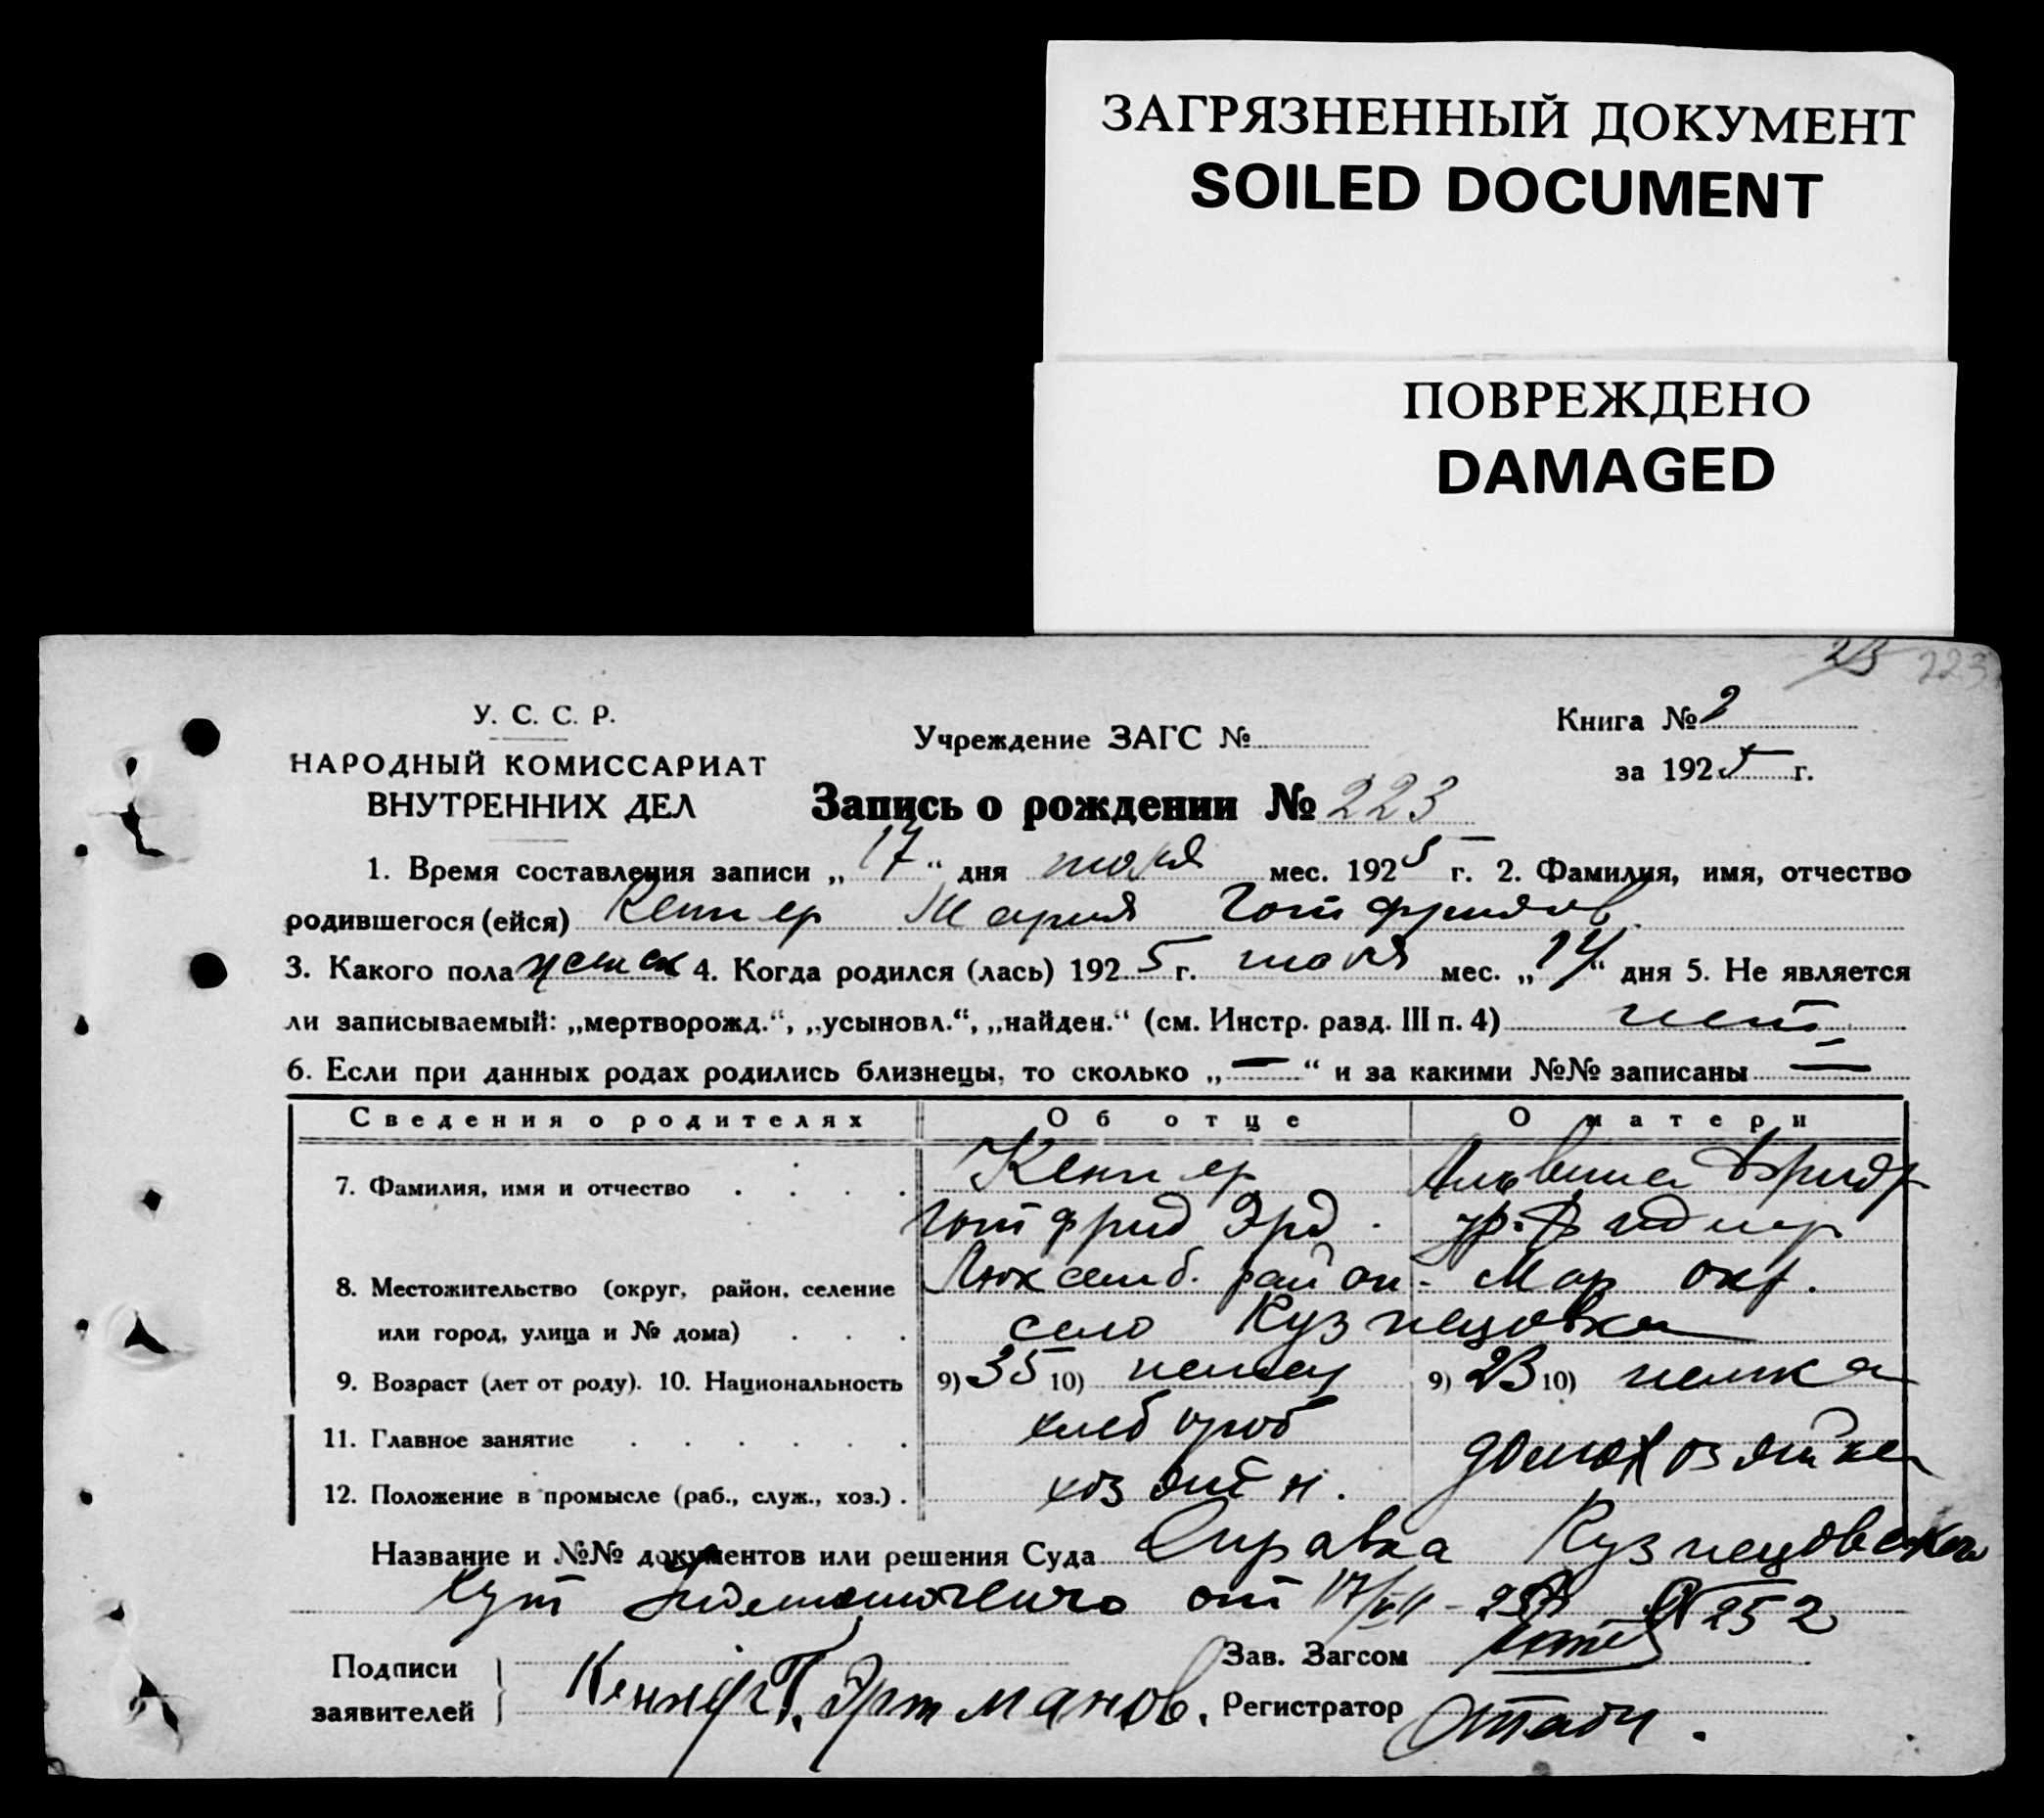 ЗАГРЯЗНЕННЫЙ ДОКУМЕНТ
SOILED DOCUMENT
ПОВРЕЖДЕНО
DAMAGED
23 223
У. С. С. Р.
НАРОДНЫЙ КОМИССАРИАТ
ВНУТРЕННИХ ДЕЛ
Учреждение ЗАГС №
Книга № 2
за 1925 г.
Запись о рождении № 223
1. Время составления записи „17“ дня июля мес. 1925 г. 2. Фамилия, имя, отчество
родившегося (ейся) Кеннер Мария Готфридов.
3. Какого пола женск 4. Когда родился (лась) 1925 г. июля мес. „14“ дня 5. Не является
ли записываемый: „мертворожд.“, „усыновл.“, „найден.“ (см. Инстр. разд. III п. 4) нет
6. Если при данных родах родились близнецы, то сколько „—“ и за какими №№ записаны —
Сведения о родителях Об отце О матери
7. Фамилия, имя и отчество . . . . Кеннер Альвина Фридр
Готфрид Эрд. ур. Фидлер
8. Местожительство (округ, район, селение Люксемб. район - Мар окр.
или город, улица и № дома) . . . село Кузнецовка
9. Возраст (лет от роду). 10. Национальность 9) 35 10) немец 9) 23 10) немка
11. Главное занятие . . . . . . хлебороб домохозяйка
12. Положение в промысле (раб., служ., хоз.) . хозяин.
Название и №№ документов или решения Суда Справка Кузнецовского
от 17/VII - 25 № 252
Подписи
заявителей
Кеннер Г. Эртманов.
Зав. Загсом
Регистратор